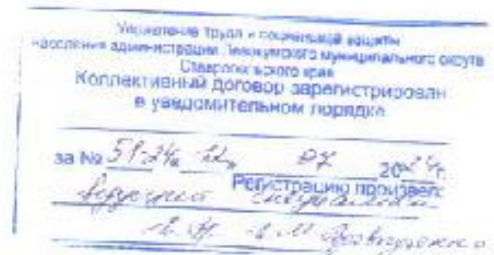 Управление труда и социальной защиты
населения администрации Левокумского муниципального округа
Ставропольского края
Коллективный договор зарегистрирован
в уведомительном порядке
за № 51-24 22 07 2024г.
Регистрацию произвел:
ведущий специалист